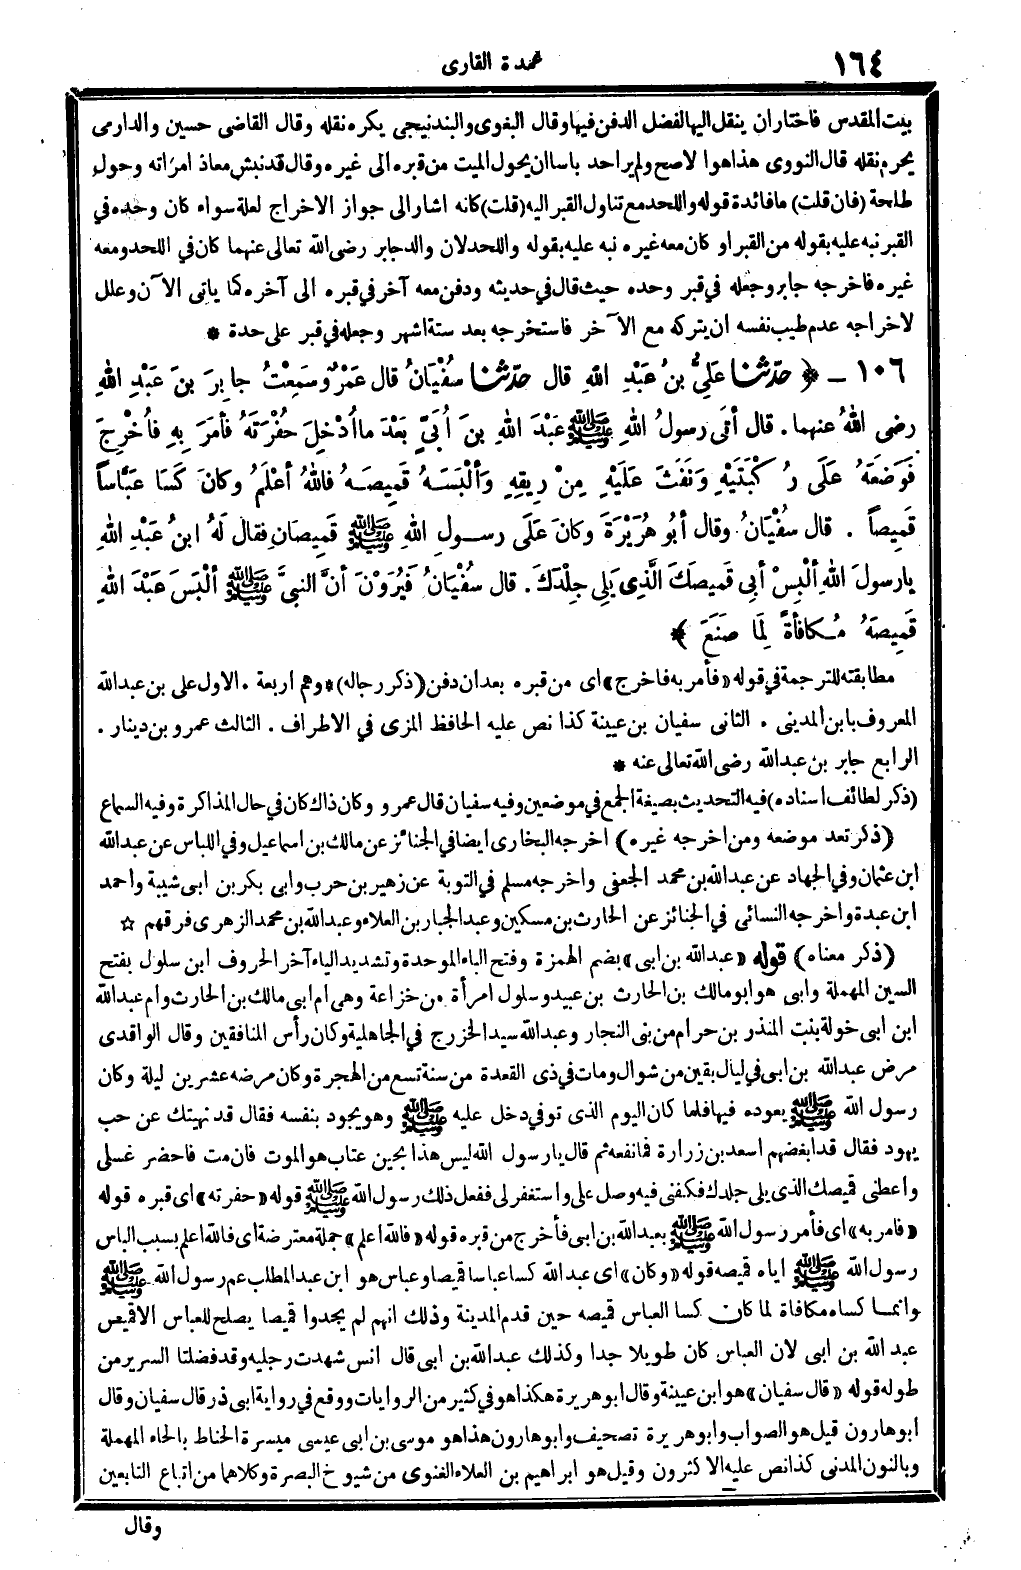 ١٦٤
عمدة القارى
بيت المقدس فاختار ان ينقل اليها لفضل الدفن فيها وقال البغوى والبندنيجى يكره نقله وقال القاضى حسين والدارمى
يحرم نقله قال النووى هذا هو الاصح ولم ير احد باسا ان يحول الميت من قبره الى غيره وقال قد نبش معاذ امرأته وحول
طلحة (فان قلت) ما فائدة قوله واللحد مع تناول القبر اليه (قلت) كانه اشار الى جواز الاخراج لعلة سواء كان وحده فى
القبر نبه عليه بقوله من القبر او كان معه غيره نبه عليه بقوله واللحد لان والد جابر رضى الله تعالى عنهما كان فى اللحد ومعه
غيره فاخرجه جابر وجعله فى قبر وحده حيث قال فى حديثه ودفن معه آخر فى قبره الى آخره كما ياتى الآن وعلل
لاخراجه عدم طيب نفسه ان يتركه مع الآخر فاستخرجه بعد ستة اشهر وجعله فى قبر على حدة *
١٠٦ - ﴿ حدّثنا عَلِيُّ بنُ عَبْدِ اللهِ قال حدّثنا سُفْيَانُ قال عَمْرٌو سَمِعْتُ جابِرَ بنَ عَبْدِ اللهِ
رضى اللهُ عنهما . قال أتَى رسولُ اللهِ ﷺ عَبْدَ اللهِ بنَ أُبَيٍّ بَعْدَ ما أُدْخِلَ حُفْرَتَهُ فأمَرَ بِهِ فأُخْرِجَ
فَوَضَعَهُ عَلَى رُكْبَتَيْهِ وَنَفَثَ عَلَيْهِ مِنْ رِيقِهِ وَأَلْبَسَهُ قَمِيصَهُ فاللهُ أعْلَمُ وكانَ كَسَا عَبَّاساً
قَمِيصاً . قال سُفْيَانُ وقال أبُو هُرَيْرَةَ وكانَ عَلَى رسولِ اللهِ ﷺ قَمِيصَانِ فقال لَهُ ابنُ عَبْدِ اللهِ
يا رسولَ اللهِ أَلْبِسْ أبِى قَمِيصَكَ الَّذِى يَلِى جِلْدَكَ . قال سُفْيَانُ فَيُرَوْنَ أنَّ النبىَّ ﷺ ألْبَسَ عَبْدَ اللهِ
قَمِيصَهُ مُكافأةً لِمَا صَنَعَ ﴾ *
مطابقته للترجمة فى قوله «فأمر به فاخرج» اى من قبره بعد ان دفن (ذكر رجاله) * وهم اربعة . الاول على بن عبدالله
المعروف بابن المدينى . الثانى سفيان بن عيينة كذا نص عليه الحافظ المزى فى الاطراف . الثالث عمرو بن دينار .
الرابع جابر بن عبدالله رضى الله تعالى عنه *
(ذكر لطائف اسناده) فيه التحديث بصيغة الجمع فى موضعين وفيه سفيان قال عمرو وكان ذاك كان فى حال المذاكرة وفيه السماع
(ذكر تعدد موضعه ومن اخرجه غيره) اخرجه البخارى ايضا فى الجنائز عن مالك بن اسماعيل وفى اللباس عن عبدالله
ابن عثمان وفى الجهاد عن عبدالله بن محمد الجعفى واخرجه مسلم فى التوبة عن زهير بن حرب وابى بكر بن ابى شيبة واحمد
ابن عبدة واخرجه النسائى فى الجنائز عن الحارث بن مسكين وعبد الجبار بن العلاء وعبدالله بن محمد الزهرى فرقهم ☆
(ذكر معناه) قوله «عبدالله بن ابى» بضم الهمزة وفتح الباء الموحدة وتشديد الياء آخر الحروف ابن سلول بفتح
السين المهملة وابى هو ابو مالك بن الحارث بن عبيد وسلول امرأة من خزاعة وهى ام ابى مالك بن الحارث وام عبدالله
ابن ابى خولة بنت المنذر بن حرام من بنى النجار وعبدالله سيد الخزرج فى الجاهلية وكان رأس المنافقين وقال الواقدى
مرض عبدالله بن ابى فى ليال بقين من شوال ومات فى ذى القعدة من سنة تسع من الهجرة وكان مرضه عشرين ليلة وكان
رسول الله ﷺ يعوده فيها فلما كان اليوم الذى توفى دخل عليه ﷺ وهو يجود بنفسه فقال قد نهيتك عن حب
يهود فقال قد ابغضهم اسعد بن زرارة فما نفعه ثم قال يا رسول الله ليس هذا بحين عتاب هو الموت فان مت فاحضر غسلى
واعطنى قميصك الذى يلى جلدك فكفنى فيه وصل على واستغفر لى ففعل ذلك رسول الله ﷺ قوله «حفرته» اى قبره قوله
«فامر به» اى فأمر رسول الله ﷺ بعبدالله بن ابى فأخرج من قبره قوله «فالله اعلم» جملة معترضة اى فالله اعلم بسبب الباس
رسول الله ﷺ اياه قميصه قوله «وكان» اى عبدالله كسا عباسا قميصا وعباس هو ابن عبدالمطلب عم رسول الله ﷺ
وانما كساه مكافاة لما كان كسا العباس قميصه حين قدم المدينة وذلك انهم لم يجدوا قميصا يصلح للعباس الا قميص
عبد الله بن ابى لان العباس كان طويلا جدا وكذلك عبدالله بن ابى قال انس شهدت رجليه وقد فضلتا السرير من
طوله قوله «قال سفيان» هو ابن عيينة وقال ابو هريرة هكذا هو فى كثير من الروايات ووقع فى رواية ابى ذر قال سفيان وقال
أبو هارون قيل هو الصواب وابو هريرة تصحيف وابو هارون هذا هو موسى بن ابى عيسى ميسرة الحناط بالحاء المهملة
وبالنون المدنى كذا نص عليه الا كثرون وقيل هو ابراهيم بن العلاء الغنوى من شيوخ البصرة وكلاهما من اتباع التابعين
وقال